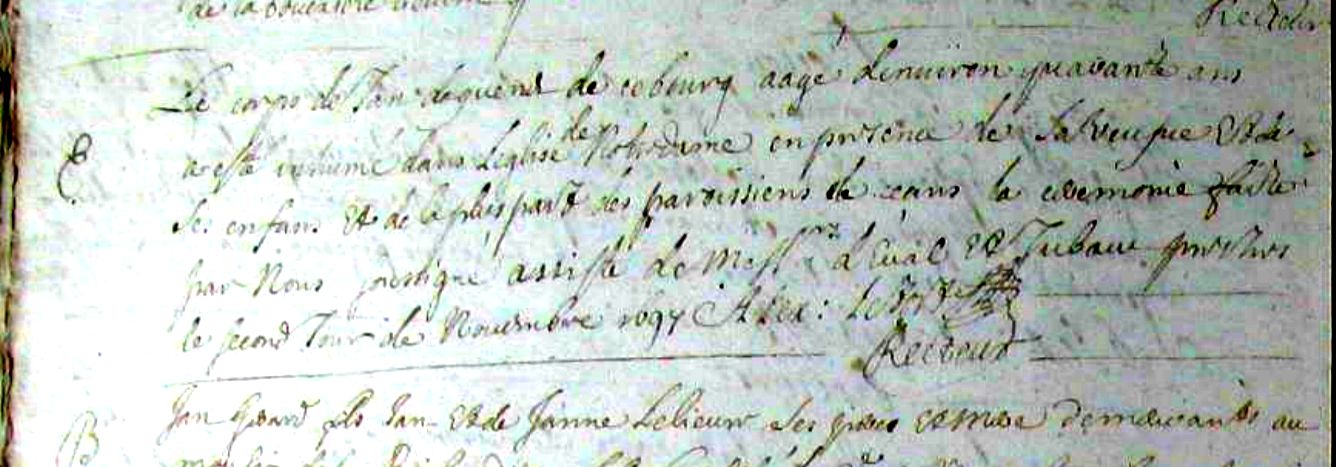 de la
Recteur
Le corps de Jan deguend de cobourg aagé d'enuiron quarante ans
E
a esté inhumé dans L'eglise de Notredame en presence de sa veufue Et de
ses enfans Et de la plus part des paroissiens de ceans la ceremonie faite
par Nous soussigné assisté de Mess.rs d'Eual Et Jubaut prestres
le second Jour de Nouembre 1697 Alex:
Recteur
B
Jan fils Jan Et de Janne Lelieur ses pere et mere demeurants au